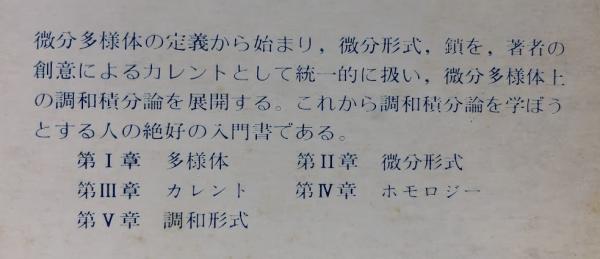 微分多様体の定義から始まり，微分形式，鎖を，著者の
創意によるカレントとして統一的に扱い，微分多様体上
の調和積分論を展開する。これから調和積分論を学ぼう
とする人の絶好の入門書である。
第Ⅰ章　多様体　　第Ⅱ章　微分形式
第Ⅲ章　カレント　　第Ⅳ章　ホモロジー
第Ⅴ章　調和形式